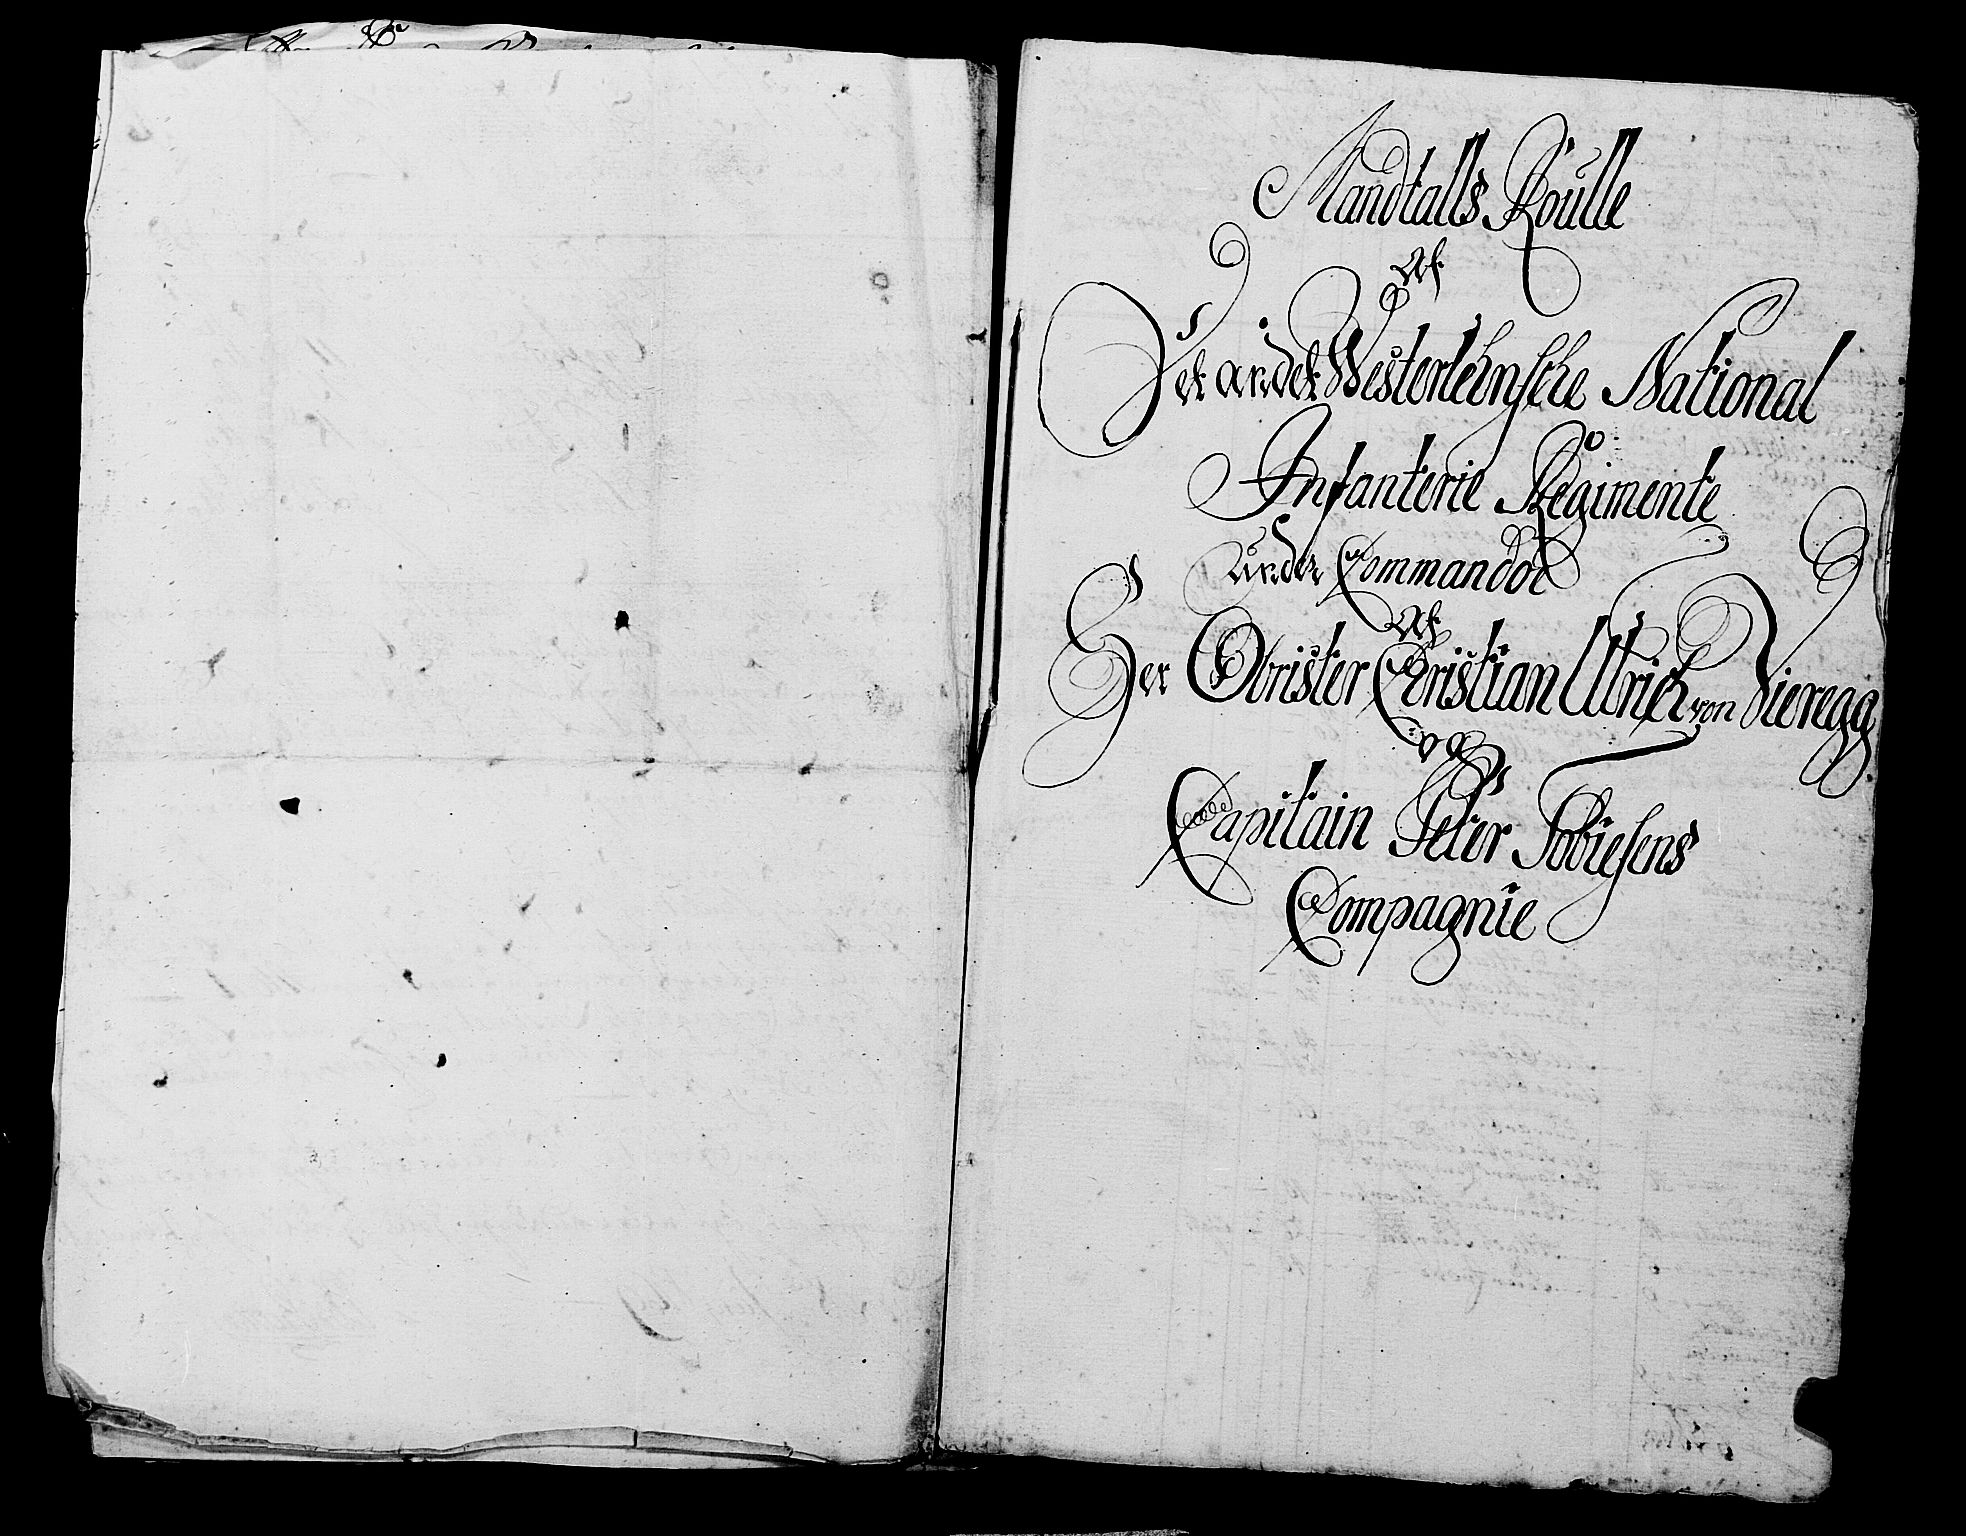 Mandtalls Roulle
Af
Det andet Westerlehnsche National
Infanterie Regimente
under Commandoe
Af
Her Obrister Christian Ulrich von Vieregg
og
Capitain Peter Tobiesens
Compagnie